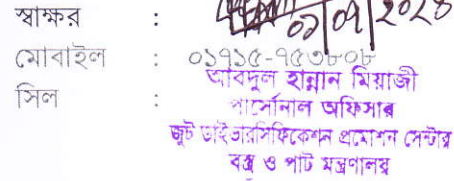 স্বাক্ষর : ০১/০৭/২০২৪
মোবাইল : ০১৭১৫-৭৫৩৮০৮
সিল :
আবদুল হান্নান মিয়াজী
পার্সোনাল অফিসার
জুট ডাইভারসিফিকেশন প্রমোশন সেন্টার
বস্ত্র ও পাট মন্ত্রণালয়